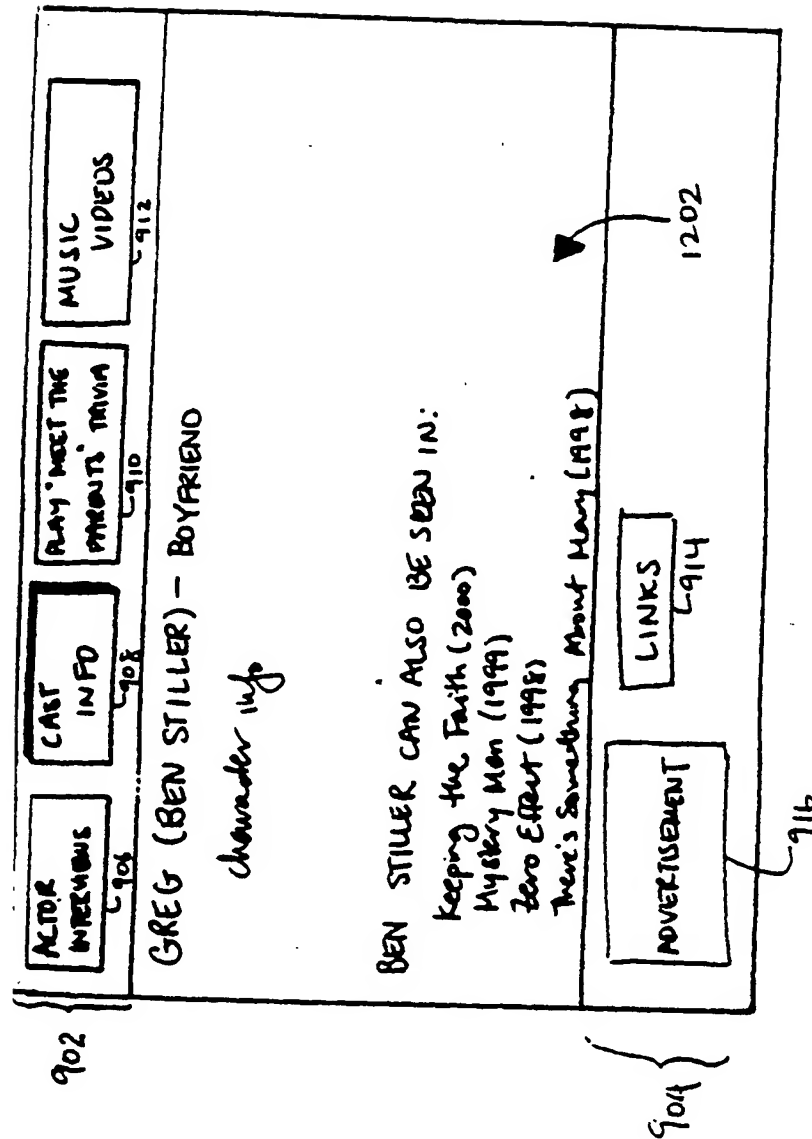 902
ACTOR
INTERVIEWS
906
CAST
INFO
908
PLAY "MEET THE
PARENTS" TRIVIA
910
MUSIC
VIDEOS
912
GREG (BEN STILLER) – BOYFRIEND
character info
BEN STILLER CAN ALSO BE SEEN IN:
Keeping the Faith (2000)
Mystery Men (1999)
Zero Effect (1998)
There's Something About Mary (1998)
1202
904
ADVERTISEMENT
916
LINKS
914